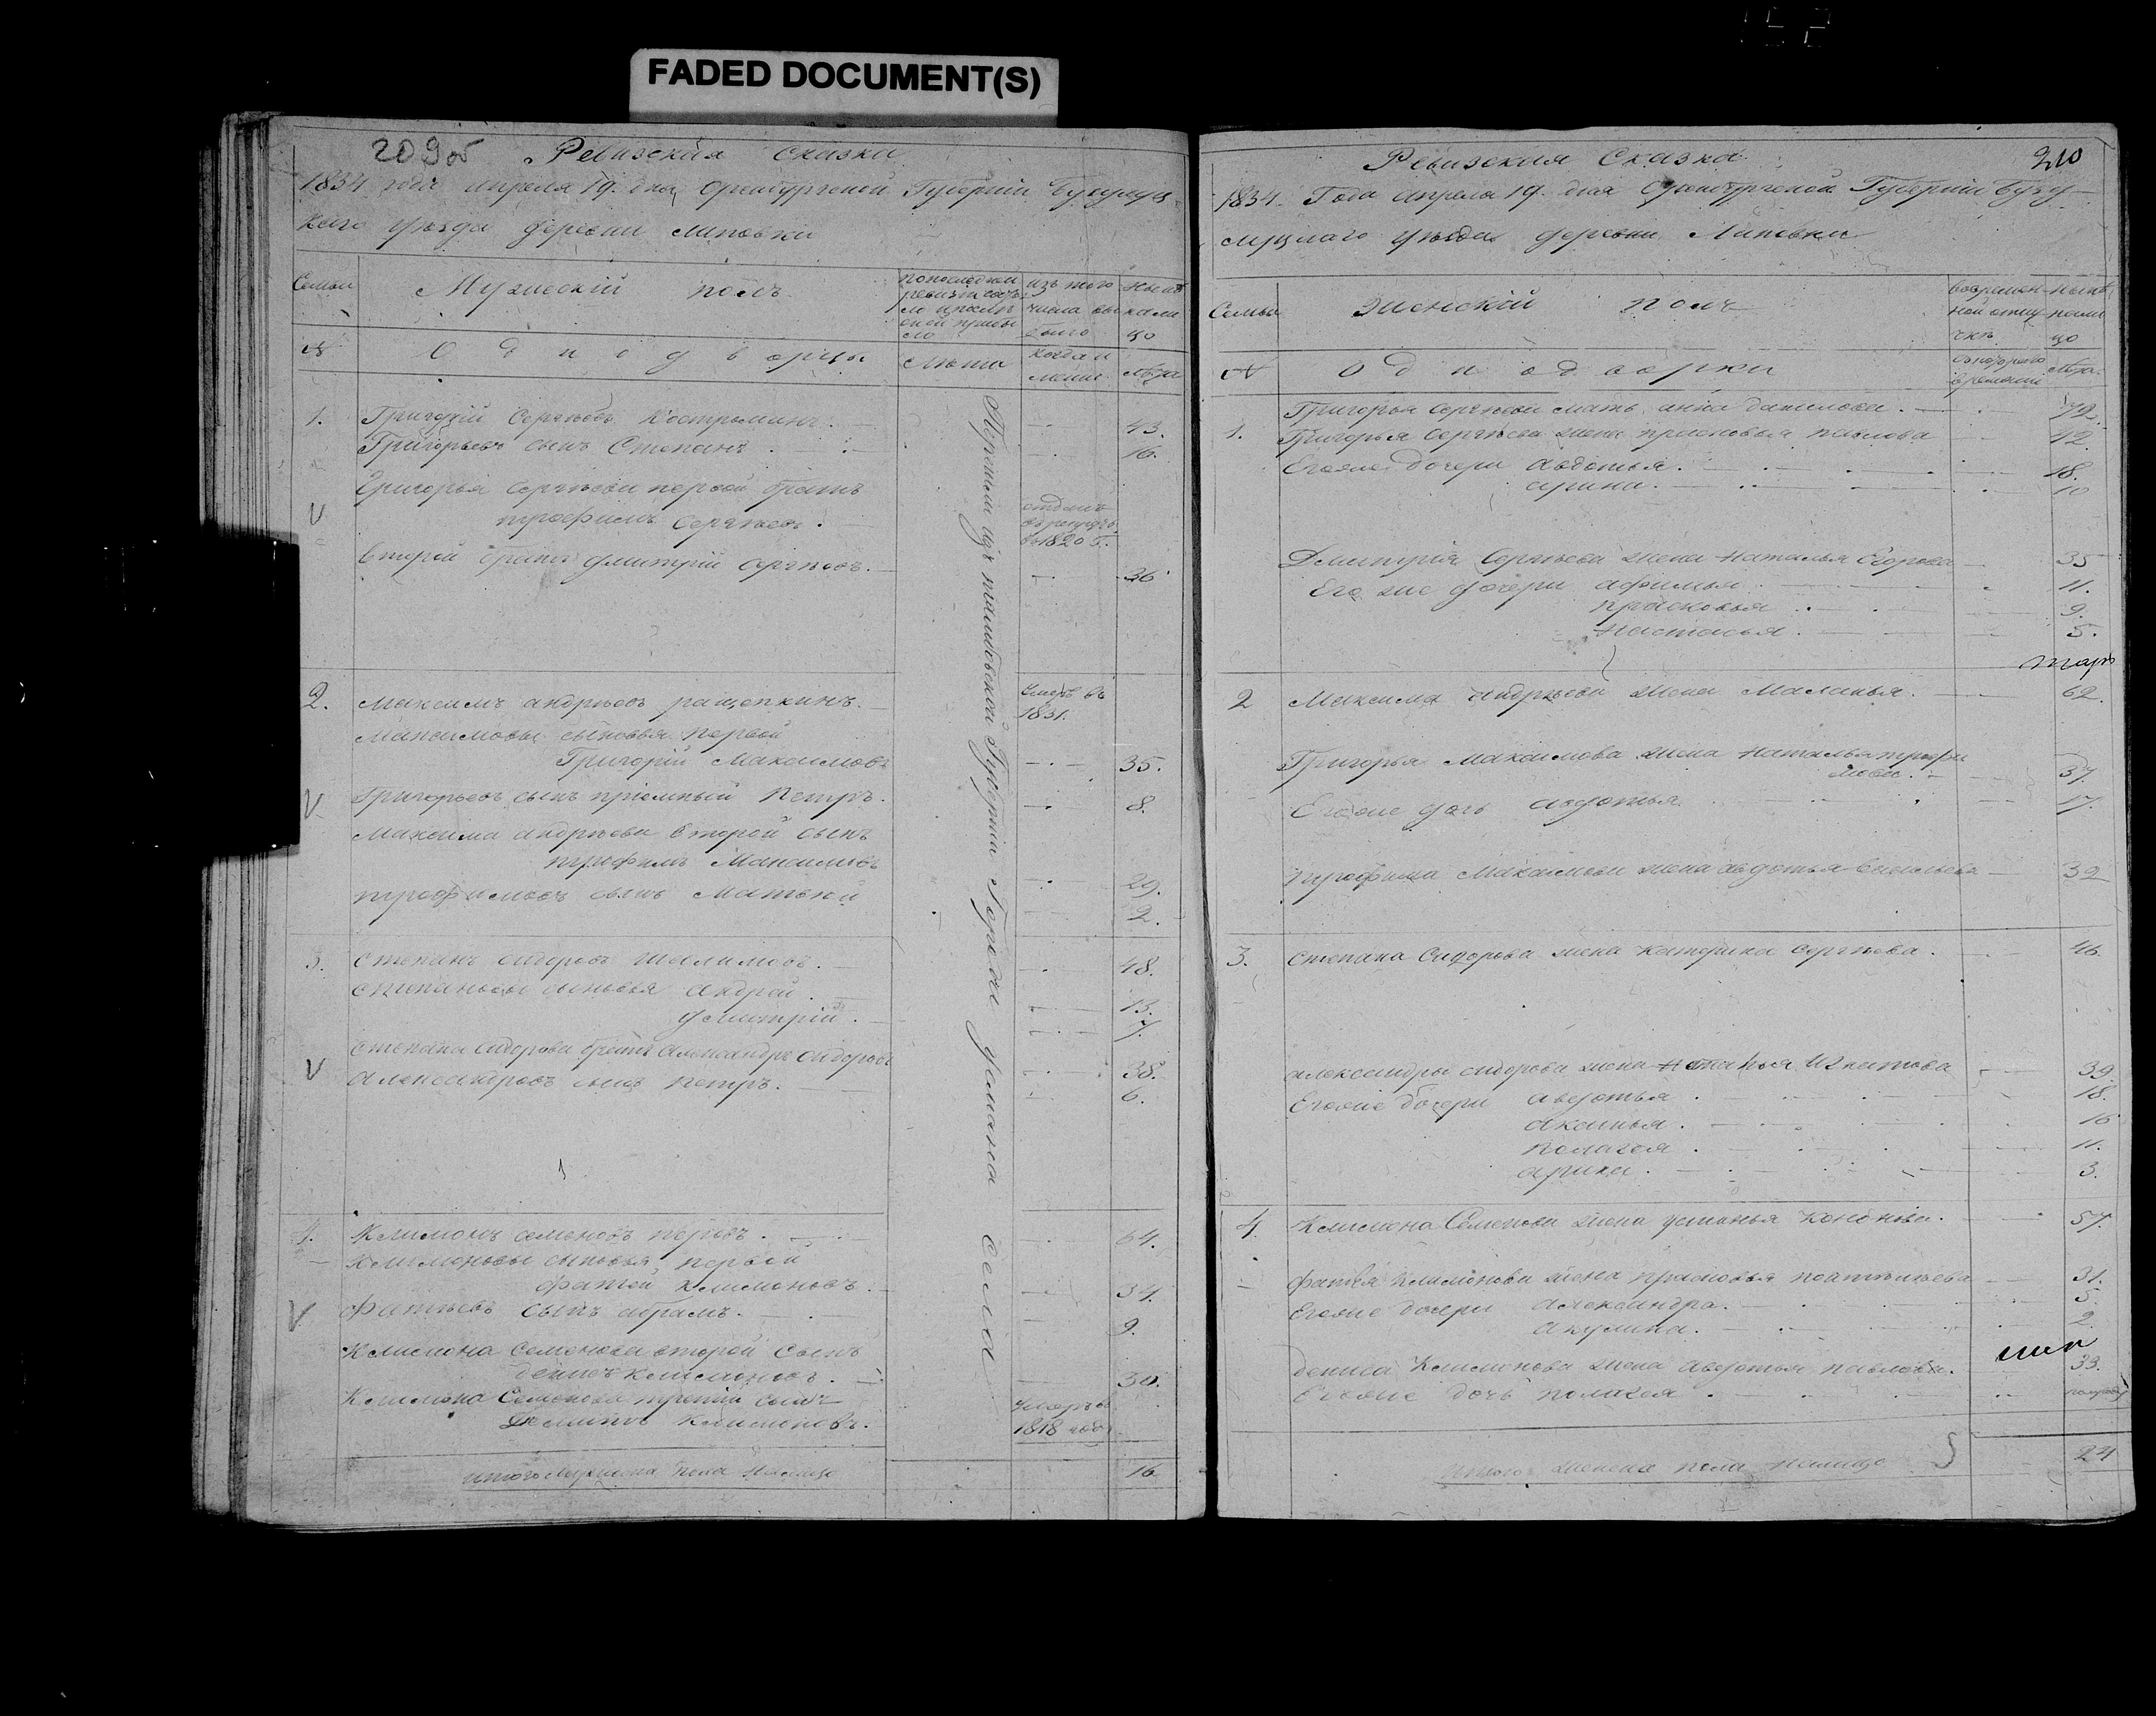 FADED DOCUMENT(S)
209об Ревизская сказка
1834 года апреля 19. дня, Оренбургской Губернии Бугурусл
каго уезда деревни липовки
Семьи
Мужеский полъ
по последней ревизии
изъ того числа выбыло
ныне на лицо
№
Однодворцы
Лета
когда и
лета
1. Григорий Сергеевъ Костроминъ. 43.
Григорьевъ сынъ Степанъ. 16.
Григорья Сергеева первой братъ
трофимъ Сергеевъ.
отданъ въ рекруты въ 1820 г.
второй братъ дмитрий сергеевъ. 36
2. максимъ андреевъ ращепкинъ.
умеръ въ 1831.
Максимовы сыновья первой
Григорий Максимовъ 35.
V Григорьевъ сынъ приемный Петръ. 8.
Максима андреева второй сынъ
трофимъ Максимовъ 29.
трофимовъ сынъ Матвей 2.
3. степанъ сидоровъ 48.
степановы сыновья андрей. 13.
дмитрий. 7.
степана сидорова братъ александръ сидоровъ 38.
V александровъ сынъ петръ. 6.
4. Климонъ семеновъ 64.
Климоновы сыновья первой
фатей климоновъ. 34.
V фатеевъ сынъ абрамъ. 9.
Климона Семенова второй сынъ
денисъ климоновъ. 30.
Климона Семенова третий сынъ
климоновъ.
умеръ въ 1818 году
итого мужеска пола налицо 16
Губернии Города села
Ревизская Сказка 210
1834. Года апреля 19. дня Оренбургской Губернии Бугу-
русланскаго уезда деревни Липовки
Семьи
Женский полъ
во временной отлучке
ныне налицо
№
Однодворки
съ котораго времени
лета
1. Григорья сергеева мать анна данилова. 72.
Григорья сергеева жена прасковья павлова 42
Егоже дочери авдотья. 18.
арина. 10
Дмитрия Сергеева жена наталья Егорова 35
Его же дочери афимья 11.
прасковья 9.
настасья. 5.
2 Максима андреева жена Маланья. 62.
Григорья максимова жена наталья трофи
мова. 37.
Егоже дочь авдотья 17.
трофима Максимова жена авдотья 32
3. степана Сидорова жена катерина сергеева. 46
александры сидорова жена наталья игнатова 39
Егоже дочери авдотья 18.
аксинья. 16
пелагея 11.
арина. 3.
4. Климона Семенова жена устинья 57.
фатея климонова жена прасковья 31.
Егоже дочери александра. 5.
акулина. 2.
дениса Климонова жена авдотья павлова. 33.
Егоже дочь пелагея
Итого женска пола налицо 24